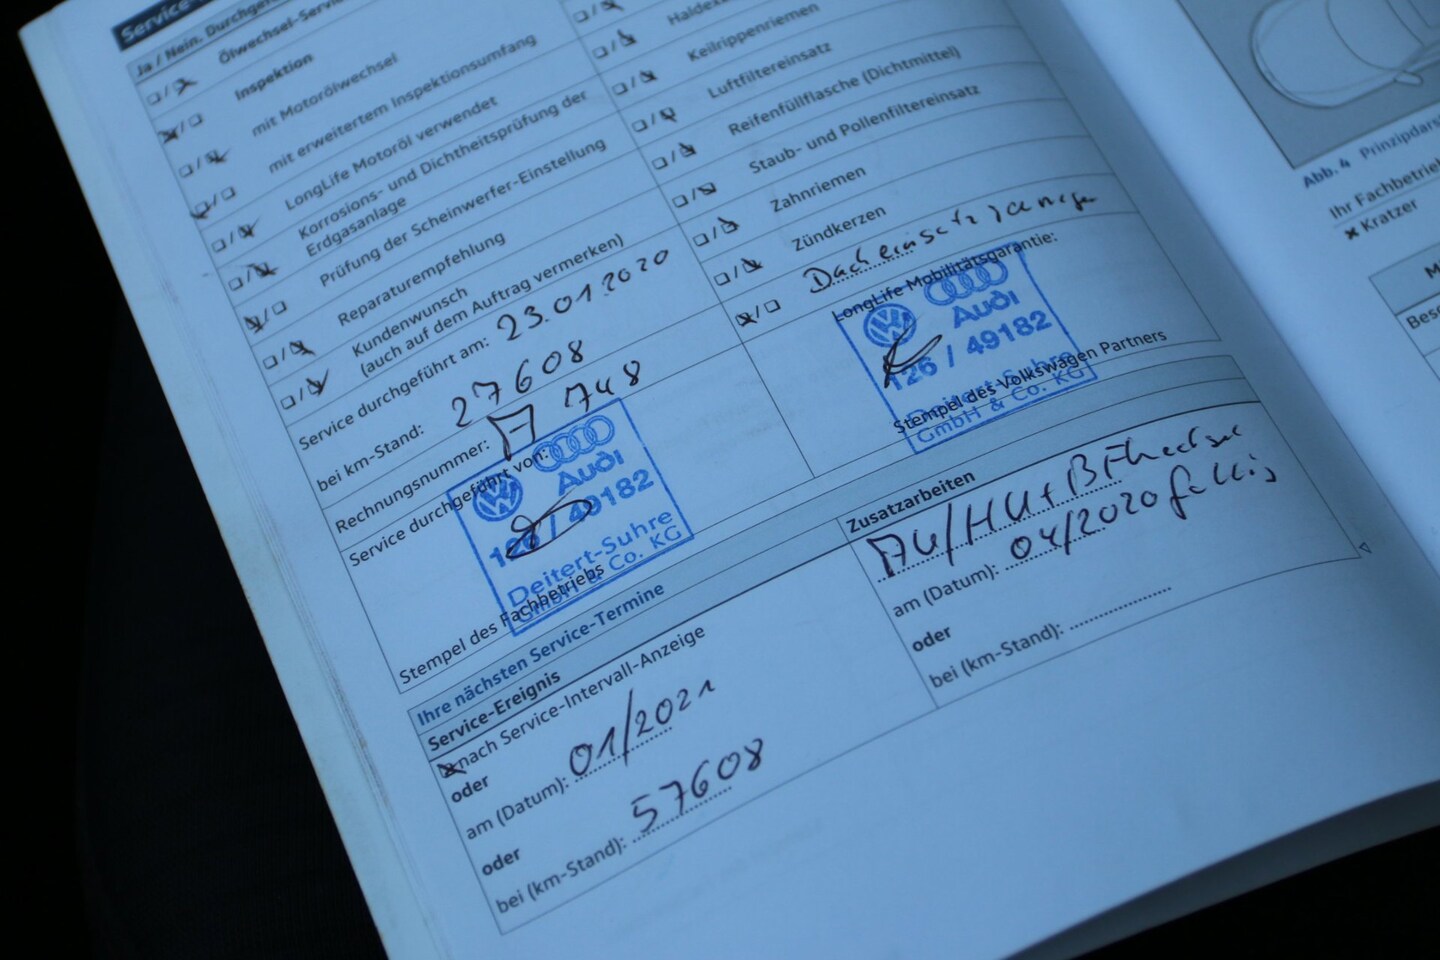 Service-
Ja / Nein. Durchgef
Ölwechsel-Servi
Inspektion
mit Motorölwechsel
mit erweitertem Inspektionsumfang
LongLife Motoröl verwendet
Korrosions- und Dichtheitsprüfung der
Erdgasanlage
Prüfung der Scheinwerfer-Einstellung
Reparaturempfehlung
Kundenwunsch
(auch auf dem Auftrag vermerken)
Service durchgeführt am: 23.01.2020
bei km-Stand: 27608
Rechnungsnummer: 748
Service durchgeführt von:
Audi
126 / 49182
Deitert-Suhre
GmbH & Co. KG
Stempel des Fachbetriebs
Haldex
Keilrippenriemen
Luftfiltereinsatz
Reifenfüllflasche (Dichtmittel)
Staub- und Pollenfiltereinsatz
Zahnriemen
Zündkerzen
LongLife Mobilitätsgarantie:
Audi
126 / 49182
Deitert-Suhre
GmbH & Co. KG
Stempel des Volkswagen Partners
Ihre nächsten Service-Termine
Service-Ereignis
nach Service-Intervall-Anzeige
oder
am (Datum): 01/2021
oder
bei (km-Stand): 57608
Zusatzarbeiten
AU/HU+
am (Datum): 04/2020 fällig
oder
bei (km-Stand):
Abb. 4 Prinzipdars
Ihr Fachbetrieb
Kratzer